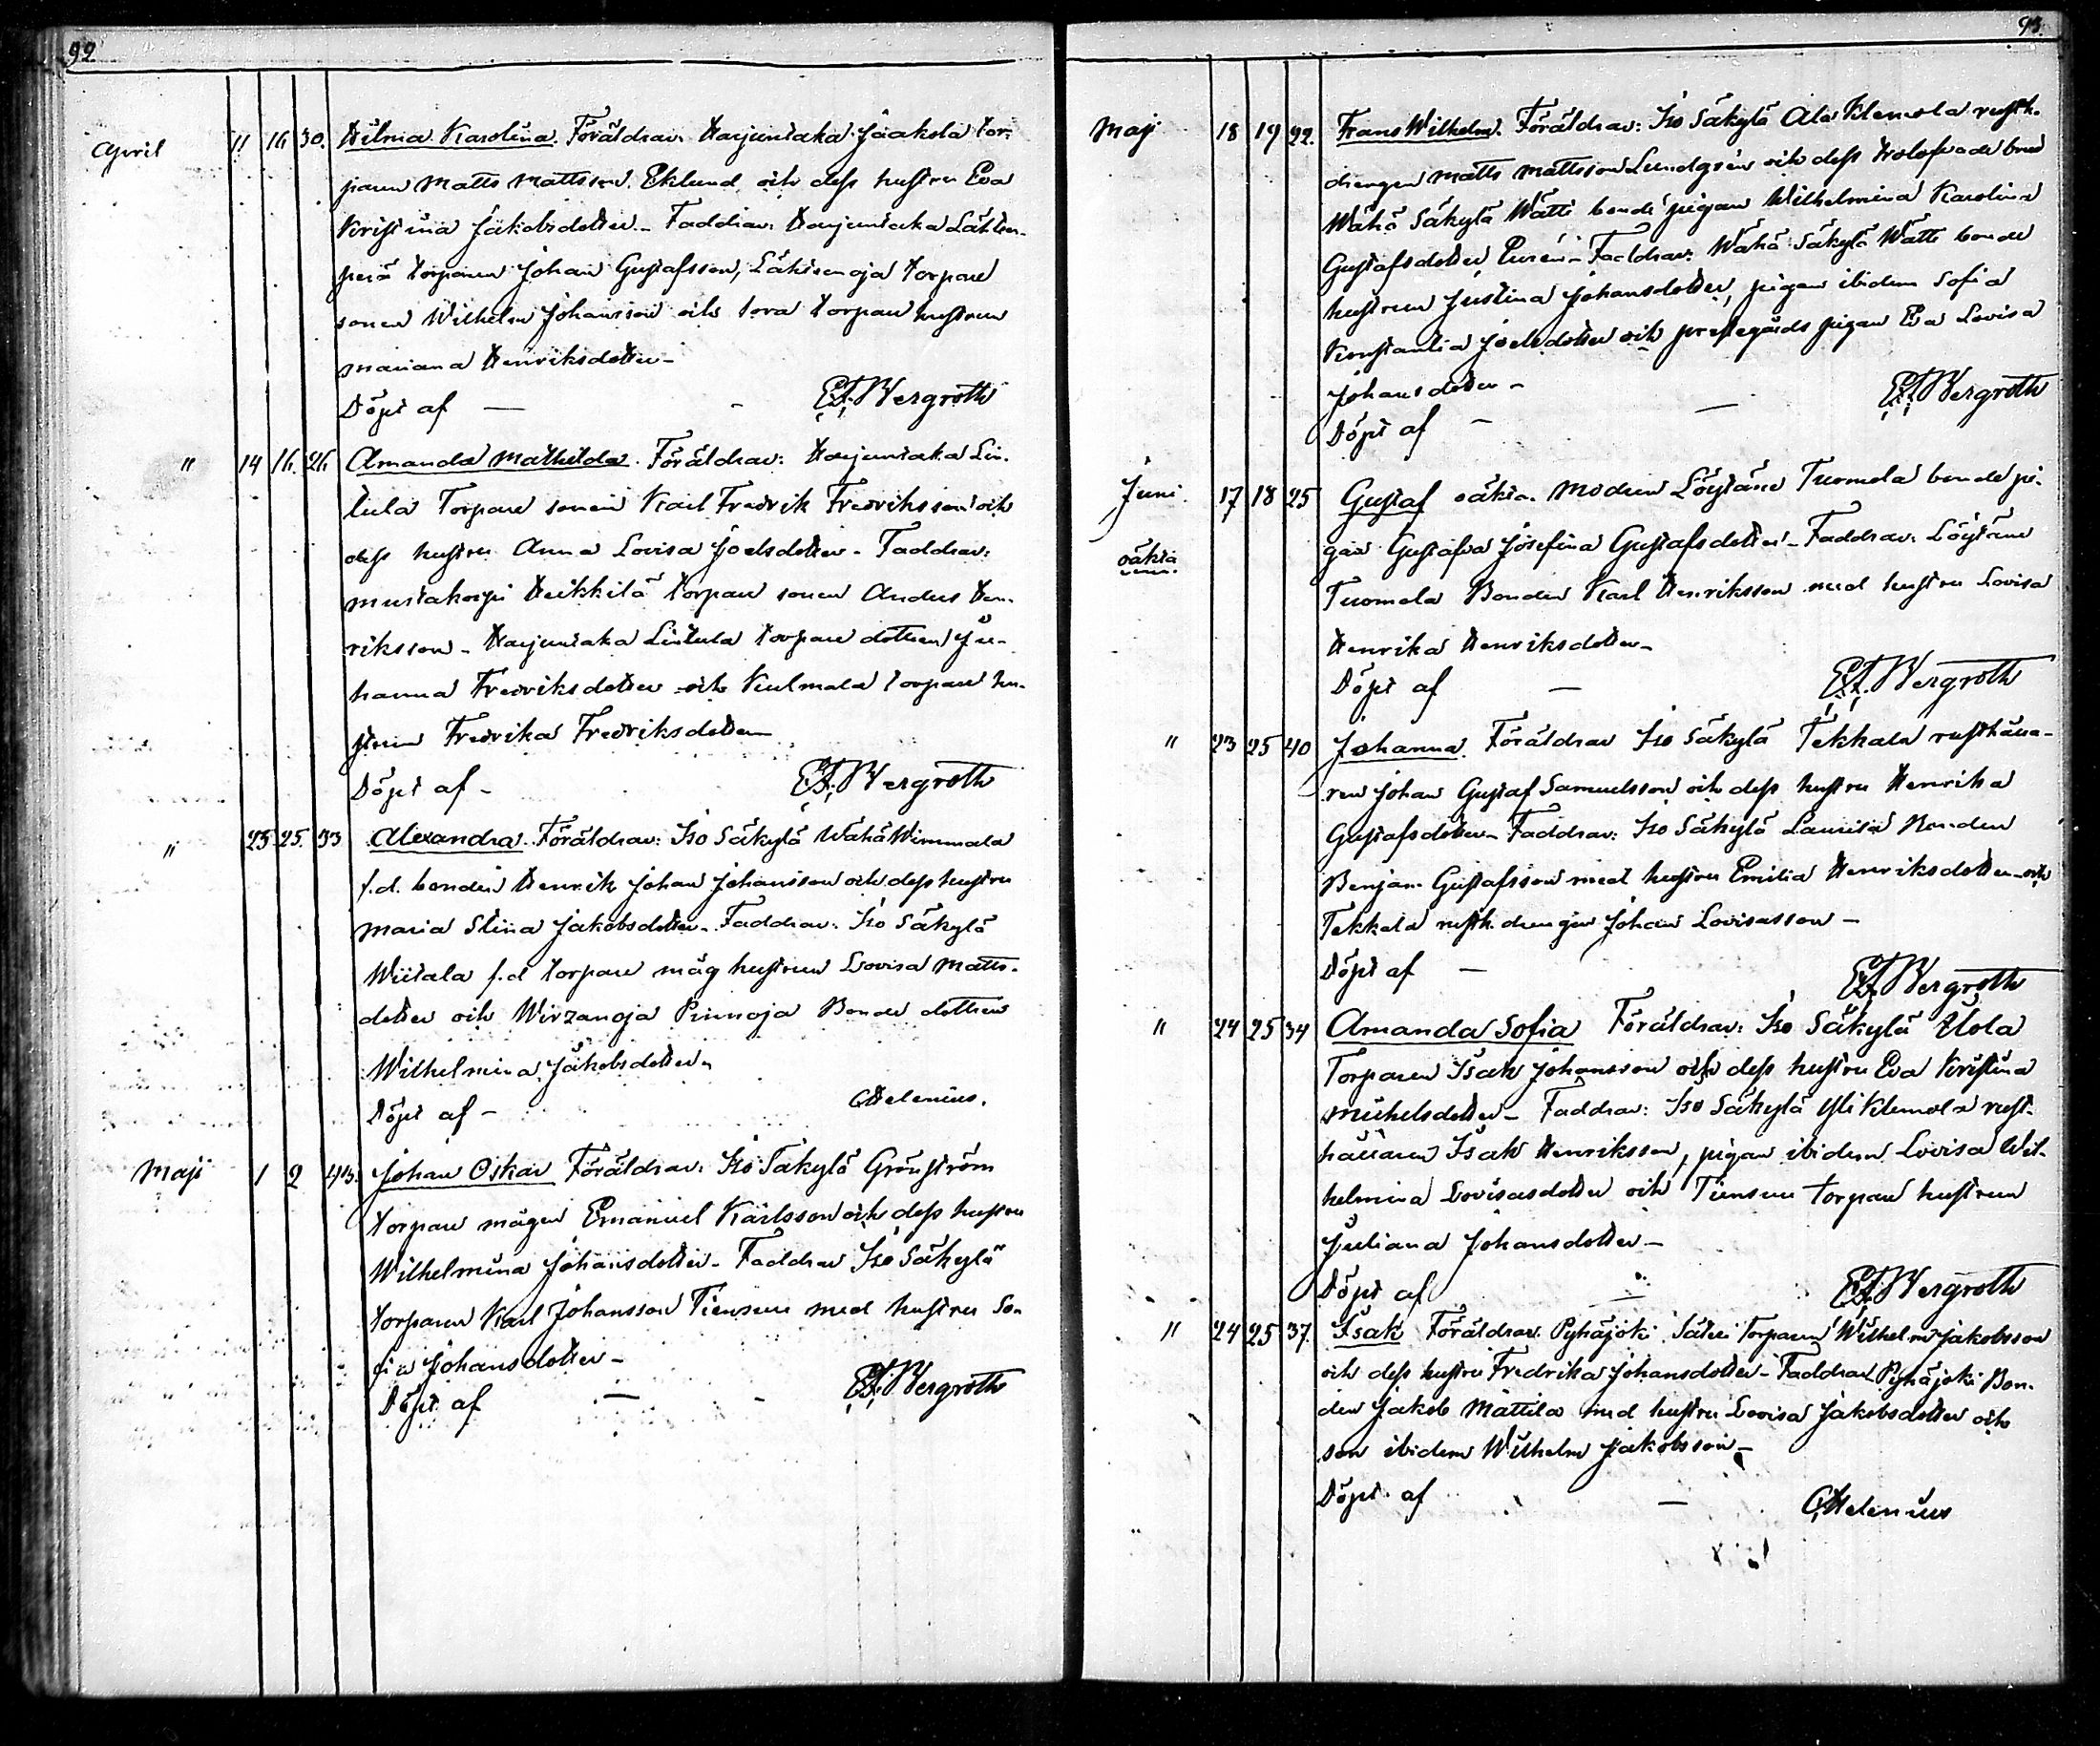 92.
April 11 16 30. Hilma Karolina. Föräldrar: Harjuntaka Jaakola tor-
paren Matts Mattsson Eklund, och dess hustru Eva
Kristina Jakobsdotter. Faddrar: Harjuntaka Lähteen-
perä torparen Johan Gustafsson, Lähteenoja torpare
sonen Wilhelm Johansson och torpare hustrun
Mariana Henriksdotter –
Döpt af — - E.F. Bergroth
" 14 16. 26 Amanda Mathilda. Föräldrar: Harjuntaka Lin-
tula Torpare sonen Karl Fredrik Fredriksson och
dess hustru Anna Lovisa Joelsdotter – Faddrar:
Mustakorpi Heikkilä torpare sonen Anders Hen-
riksson – Harjuntaka Lintula torpare dottren Jo-
hanna Fredriksdotter och Kulmala torpare hu-
strun Fredrika Fredriksdotter
Döpt af – E.F. Bergroth
" 23 25. 33 Alexandra. Föräldrar: Iso Säkylä Wähä Wimmala
f.d. bonden Henrik Johan Johansson och dess hustru
Maria Stina Jakobsdotter. Faddrar: Iso Säkylä
Wiitala f.d torpare måg hustrun Lovisa Matts-
dotter och Wirzanoja Pinnoja Bonde dottren
Wilhelmina Jakobsdotter
Döpt af – C Helenius.
Maji 1 2 Johan Oskar Föräldrar: Iso Säkylä Grönström
torpare mågen Emanuel Karlsson och dess hustru
Wilhelmina Johansdotter – Faddrar Iso Säkylä
torparen Karl Johansson Tiensuu med hustru So-
fia Johansdotter –
Döpt af — - E.F. Bergroth
93.
Maji 18 19 22. Frans Wilhelm. Föräldrar: Iso Säkylä Ala Klemola rusth.
drengen Matts Mattsson Lundgrén och dess trolofvade brud
Wähä Säkylä Wätti bonde pigan Wilhelmina Karolina
Gustafsdotter Purén – Faddrar: Wähä Säkylä Wätti bonde
hustrun Justina Johansdotter, pigan ibidem Sofia
Konstantia Joelsdotter och prestegårds pigan Eva Lovisa
Johansdotter –
Döpt af – — E.F. Bergroth
Juni. 17 18 25 Gustaf oäkta. Modren Löytäne Tuomola bonde pi-
oäkta gan Gustafva Josefina Gustafsdotter – Faddrar: Löytäne
Tuomola Bonden Karl Henriksson med hustru Lovisa
Henrika Henriksdotter –
Döpt af — E.F. Bergroth
" 23 25 40 Johanna. Föräldrar Iso Säkylä Tekkala rusthålla-
ren Johan Gustaf Samuelsson och dess hustru Henrika
Gustafsdotter – Faddrar: Iso Säkylä Laurila Bonden
Benjam. Gustafsson med hustru Emilia Henriksdotter – och
Tekkala rusth. drengen Johan Lovisasson –
Döpt af — E.F. Bergroth
" 24 25 34 Amanda Sofia Föräldrar: Iso Säkylä Uola
Torparen Isak Johansson och dess hustru Eva Kristina
Michelsdotter – Faddrar: Iso Säkylä Yli Klemola rust-
hållaren Isak Henriksson, pigan ibidem Lovisa Wil-
helmina Lovisasdotter och Tiensuu torpare hustrun
Juliana Johansdotter –
Döpt af — E.F. Bergroth
" 24 25 37. Isak Föräldrar: Pyhäjoki Säteri Torparen Wilhelm Jakobsson
och dess hustru Fredrika Johansdotter – Faddrar Pyhäjoki Bon-
den Jakob Mattila med hustru Lovisa Jakobsdotter och
son ibidem Wilhelm Jakobsson –
Döpt af — C Helenius